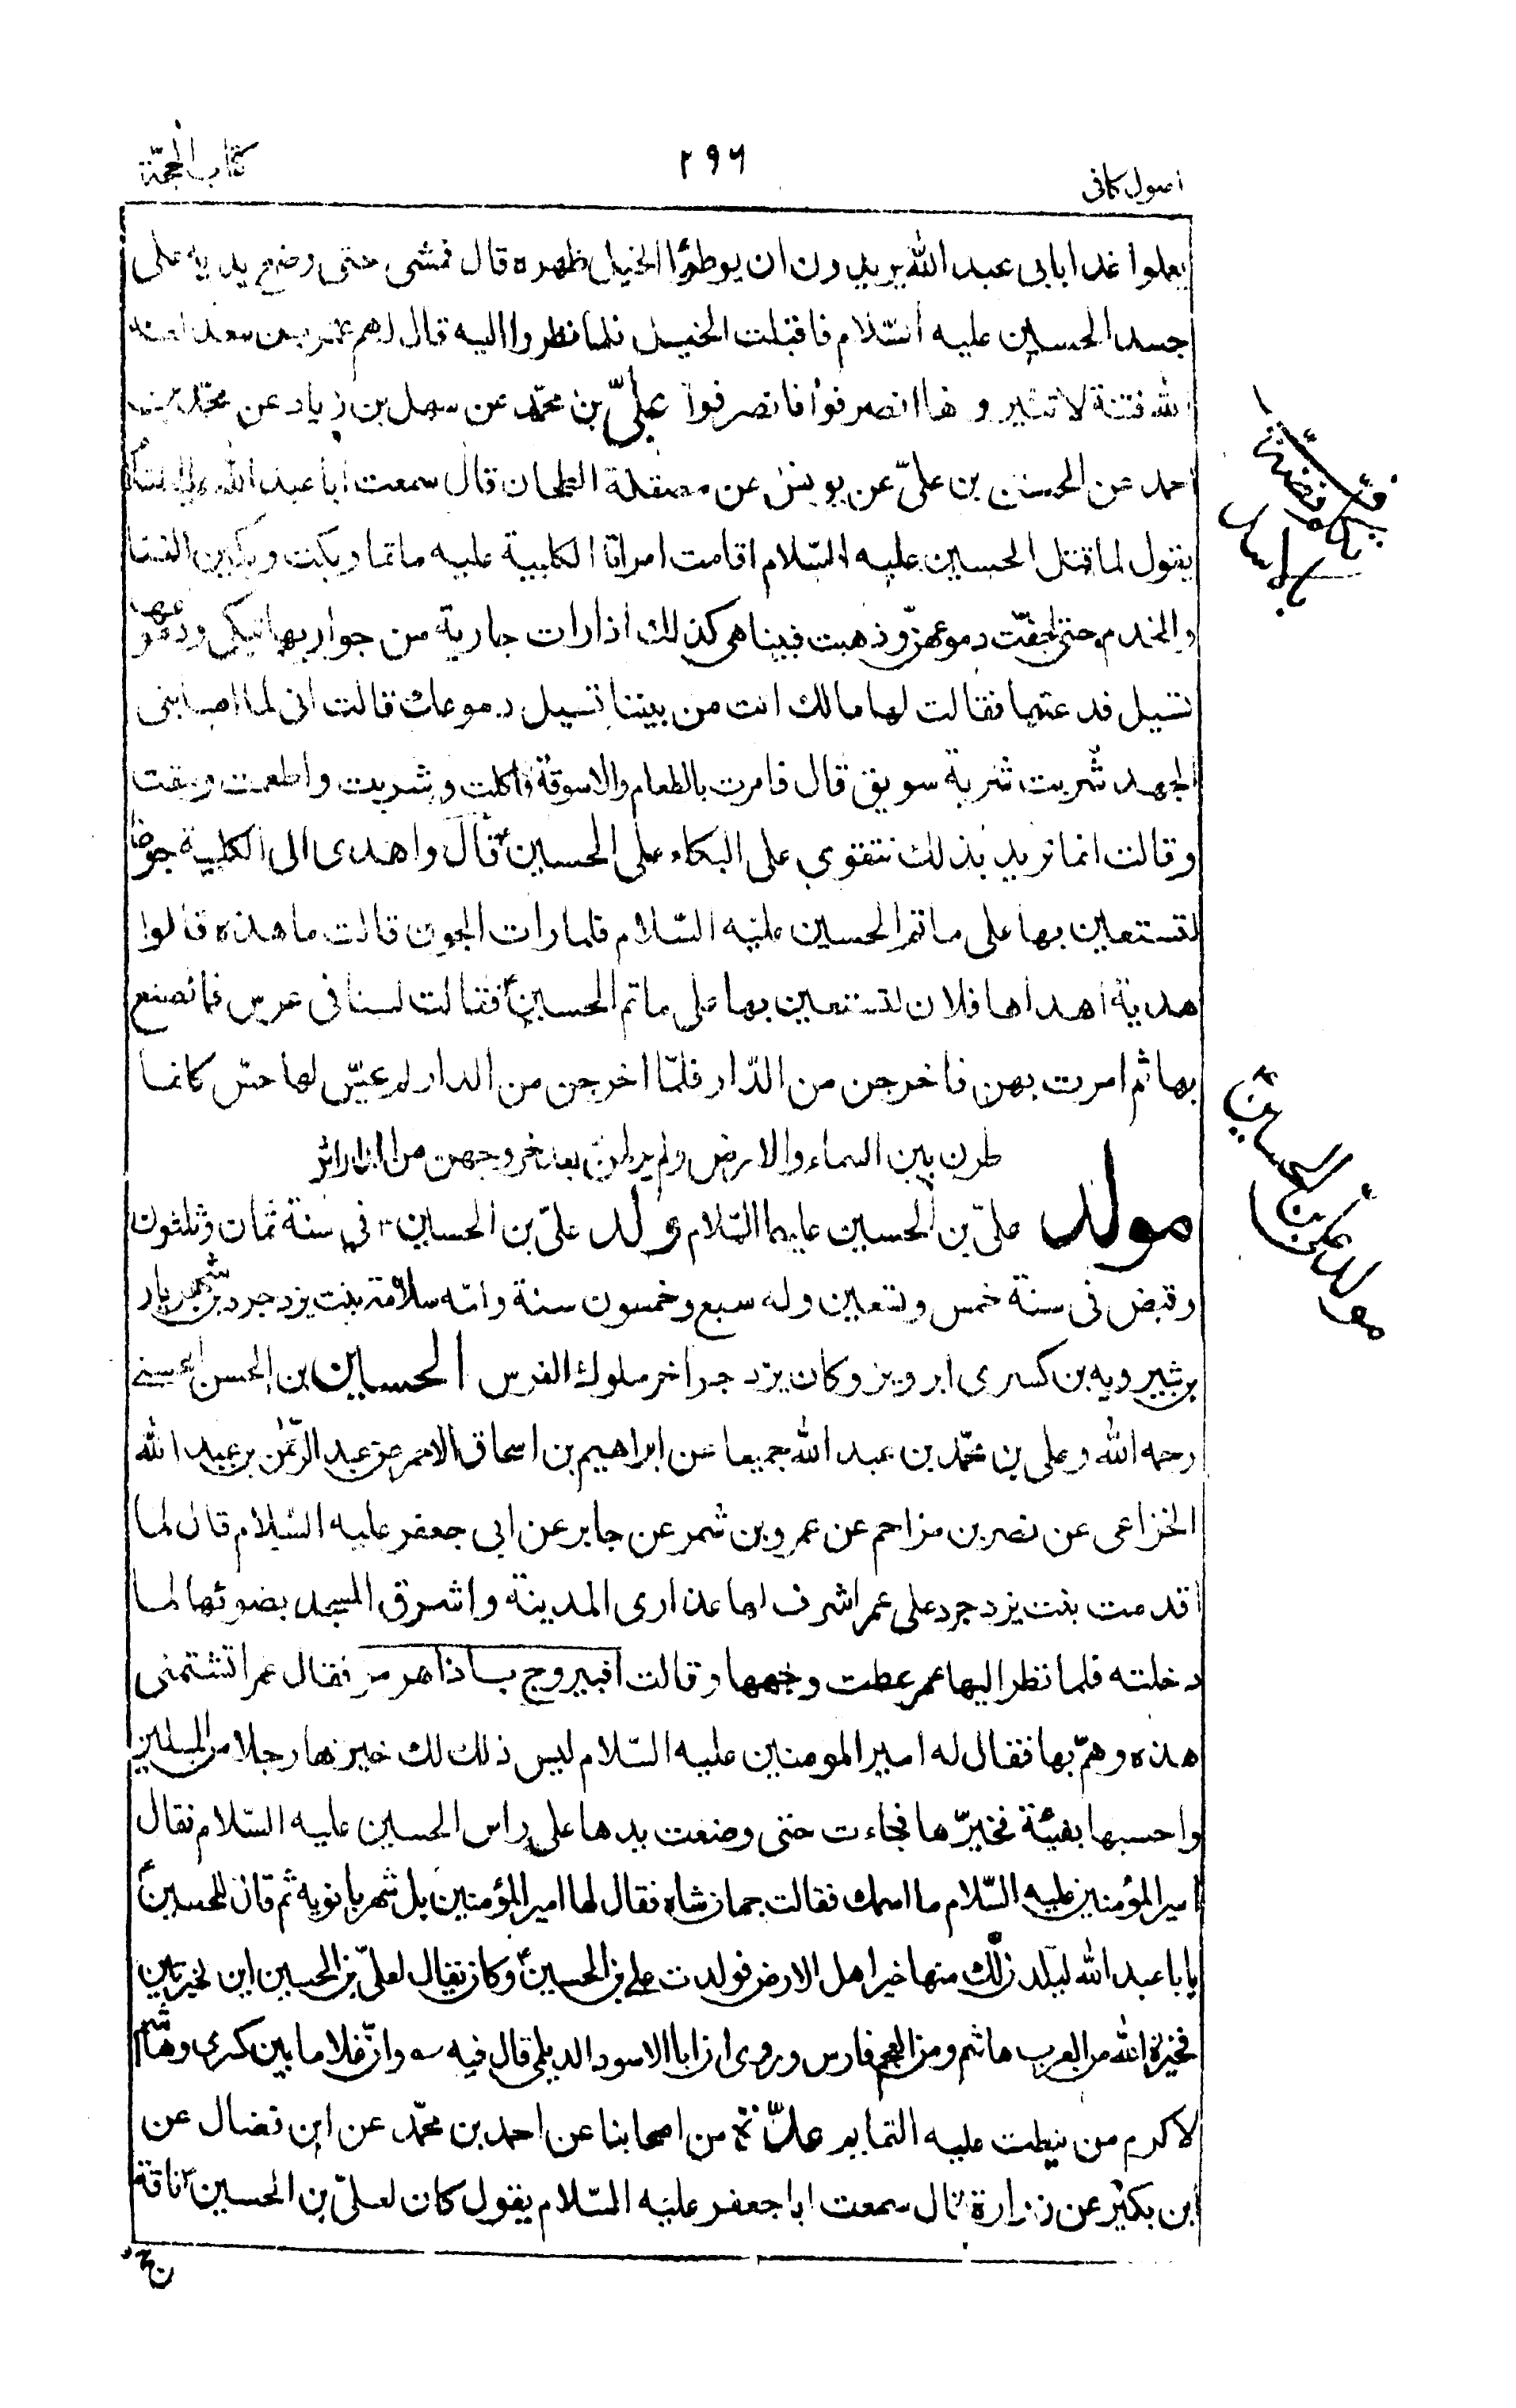 اصول كافى
٢٩٦
كتاب الحجّة
يعملوا غدا بابى عبد الله يريدون ان يوطؤا الخيل ظهره قال فمشى حتى وضع يديه على
جسد الحسين عليه السّلام فاقبلت الخيل فلما نظروا اليه قال لهم عمر بن سعد لعنه
الله فتنة لا تثيروها انصرفوا فانصرفوا علىّ بن محمّد عن سهل بن زياد عن محمّد بن
احمد عن الحسن بن علىّ عن يونس عن مصقلة الطحان قال سمعت ابا عبد الله عليه السلام
يقول لما قتل الحسين عليه السّلام اقامت امراته الكلبية عليه ماتما وبكت وبكين النسا
والخدم حتى جفّت دموعهنّ وذهبت فبينا هى كذلك اذا رات جارية من جواريها تبكى ودموعها
تسيل فدعتها فقالت لها مالك انت من بيننا تسيل دموعك قالت انى لما اصابنى
الجهد شربت شربة سويق قال فامرت بالطعام والاسوقة فاكلت وشربت واطعمت وسقت
وقالت انما نريد بذلك نتقوى على البكاء على الحسينؑ قال واهدى الى الكلبية جونا
لتستعين بها على ماتم الحسين عليه السّلام فلما رات الجون قالت ما هذه قالوا
هدية اهداها فلان لتستعين بها على ماتم الحسينؑ فقالت لسنا فى عرس فما نصنع
بها ثم امرت بهن فاخرجن من الدّار فلمّا اخرجن من الدار لم يحسّ لها حسّ كانما
طرن بين السماء والارض ولم ير لهنّ بعد خروجهن من الدار اثر
مولد علىّ بن الحسين عليهما السّلام ولد علىّ بن الحسينؑ فى سنة ثمان وثلثون
وقبض فى سنة خمس وتسعين وله سبع وخمسون سنة وامّه سلامة بنت يزدجرد بن شهريار
بن شيرويه بن كسرى ابرويز وكان يزدجرد اخر ملوك الفرس الحسين بن الحسن الحسنى
رحمه الله وعلى بن محمّد بن عبد الله جميعا عن ابراهيم بن اسحاق الاحمر عن عبد الرحمٰن بن عبد الله
الخزاعى عن نصر بن مزاحم عن عمرو بن شمر عن جابر عن ابى جعفر عليه السّلام قال لما
اقدمت بنت يزدجرد على عمر اشرف لها عذارى المدينة واشرق المسجد بضوئها لما
دخلته فلما نظر اليها عمر غطت وجهها وقالت افبيروج باذا هرمز فقال عمر اتشتمنى
هذه وهمّ بها فقال له امير المومنين عليه السّلام ليس ذلك لك خيرها رجلا من المسلمين
واحسبها بفيئه فخيرّها فجاءت حتى وضعت يدها على راس الحسين عليه السّلام فقال
امير المؤمنين عليه السّلام ما اسمك فقالت جهان شاه فقال لها امير المؤمنين بل شهربانويه ثم قال للحسينؑ
يا با عبد الله ليلدن لك منها خير اهل الارض فولدت على بن الحسينؑ وكان يقال لعلىّ بن الحسين ابن الخيرتين
فخيرة الله من العرب هاشم ومن العجم فارس وروى ان ابا الاسود الديلى قال فيه وانّ غلاما بين كسرى وهاشم
لاكرم من نيطت عليه التمايم عدّة من اصحابنا عن احمد بن محمّد عن ابن فضال عن
ابن بكير عن زرارة قال سمعت ابا جعفر عليه السّلام يقول كان لعلىّ بن الحسينؑ ناقة
مولد على بن الحسينؑ